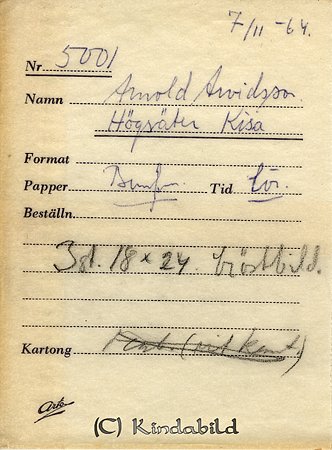 7/11 - 64.
Nr 5001
Namn Arnold Arvidsson.
Högsäter Kisa
Format
Papper Tid lör.
Beställn.
3 st. 18 x 24 bröstbild.
Kartong (vit kant)
Arto
(C) Kindabild